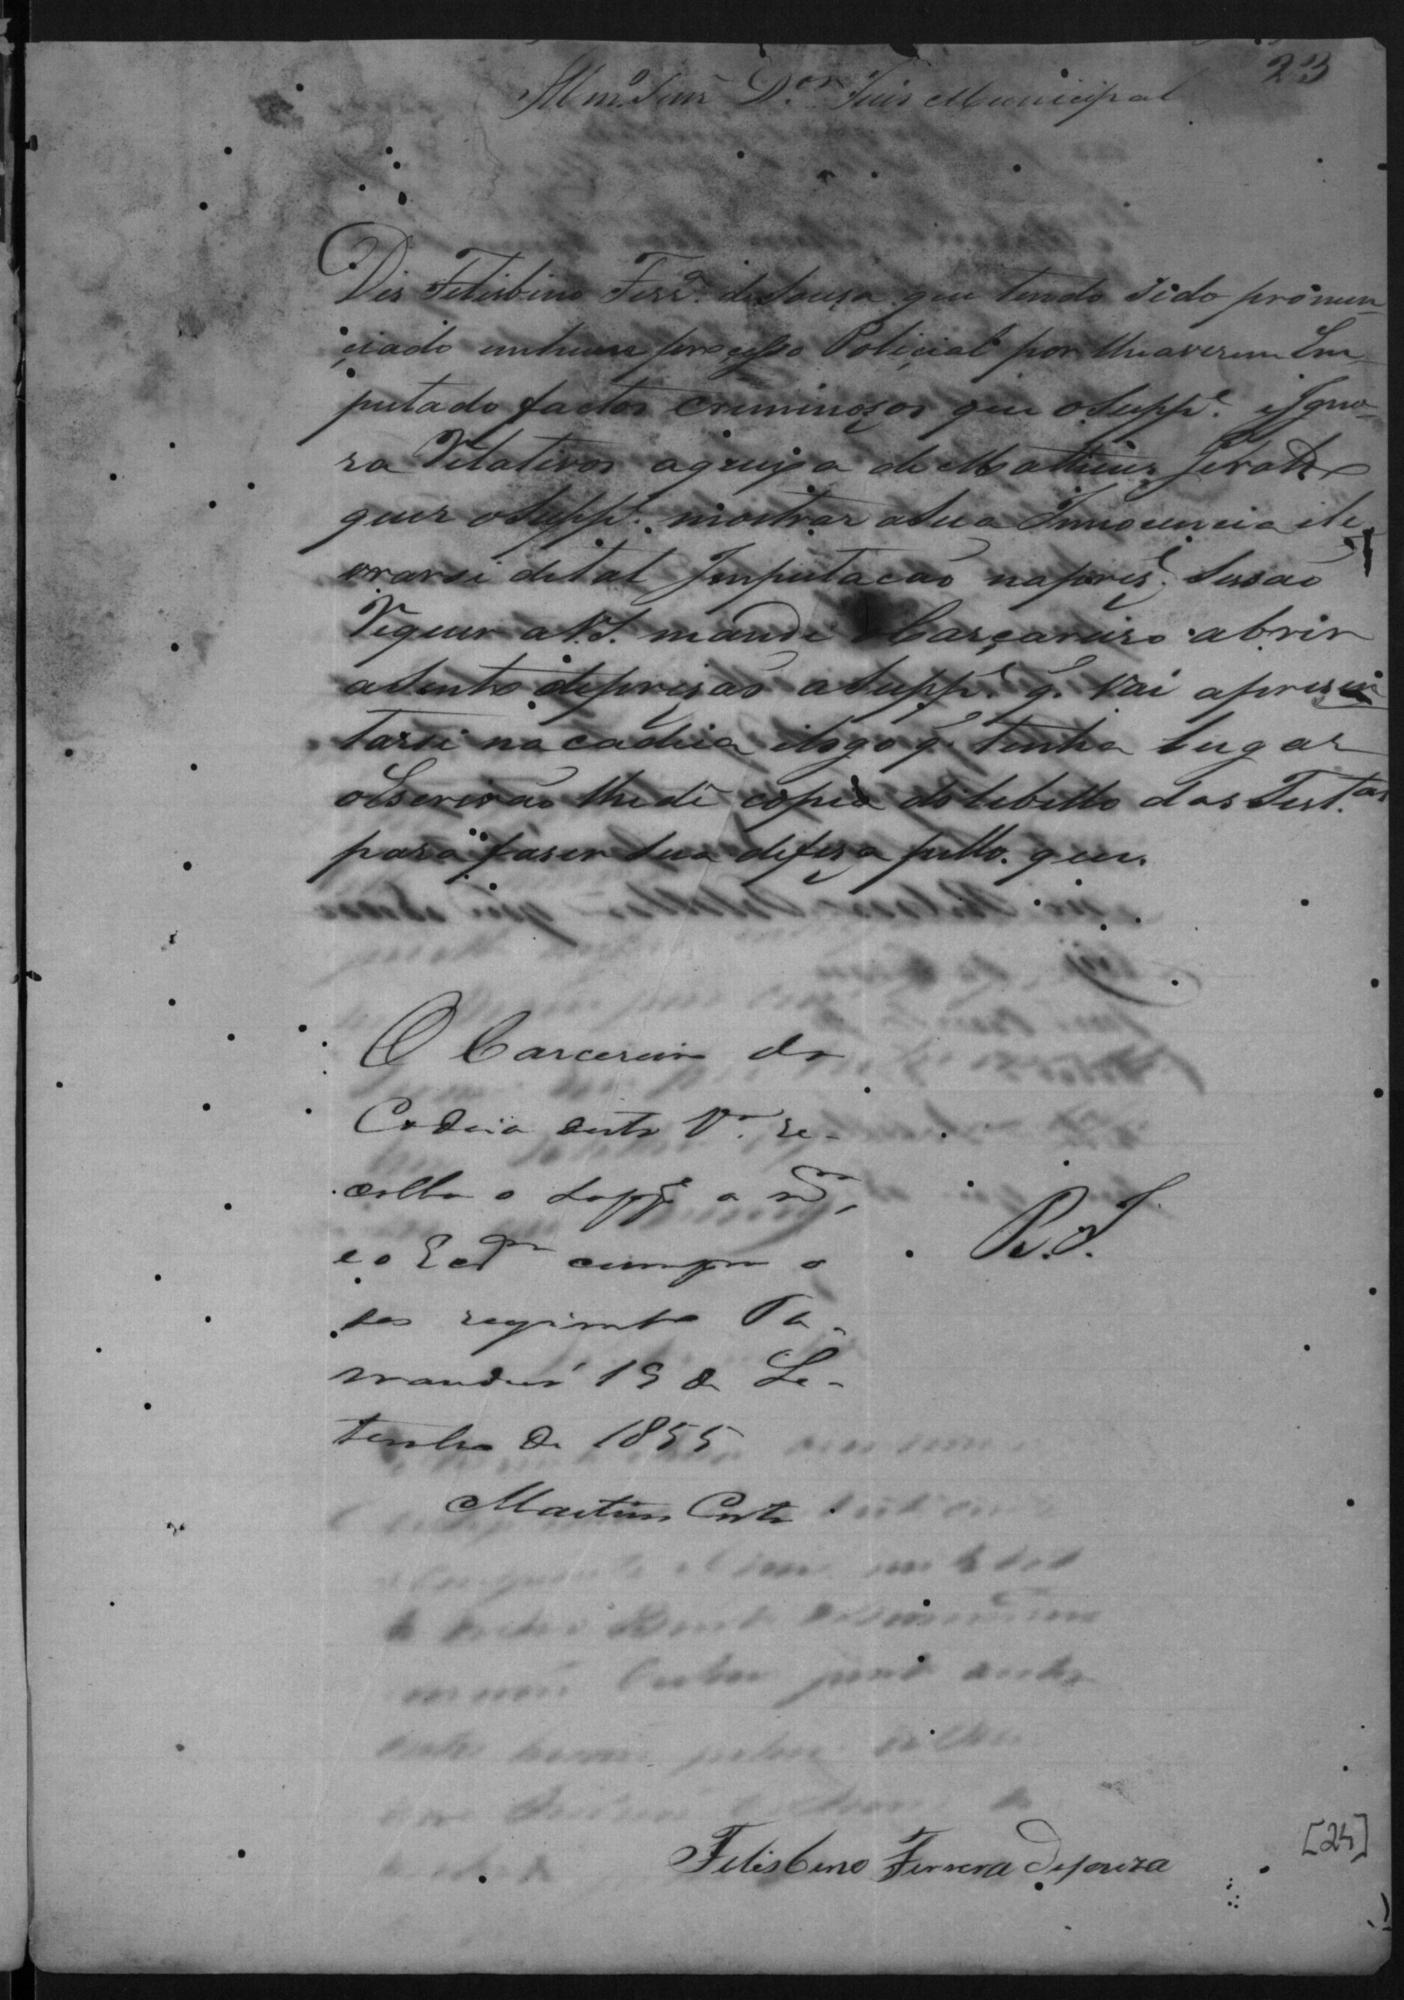 23
Illmo. Snr. Dor. Juis Municipal
Dis Felisbino Ferra. de Sousa que tendo sido pronun-
ciado em hum proçesso Poliçial por lhe averem Im-
putado factos criminozos que o Suppe. Igno-
ra Relativos a de Matheus
quer o Suppe. mostrar a sua Innocencia e le
vrarse de tal Imputacão na prezе. Sesaõ
Requer a V.S. mande o Carçareiro abrir
asento de prizão a Suppe. q. vai apresen
tarse na cadeia e logo q. tenha lugar
o Escrivão lhe dê copia do Libello e das Test.as
para faser sua defeza pello. que.
O Carcereiro da
Cadeia desta Va. re-
colha o Suppe. a
e o Escram cumpra o
seo regimto. Ta-
manduá 19 de Se-
tembro de 1855
Martins Costa
R.J.
Felisbino Ferrera Desouza
[24]